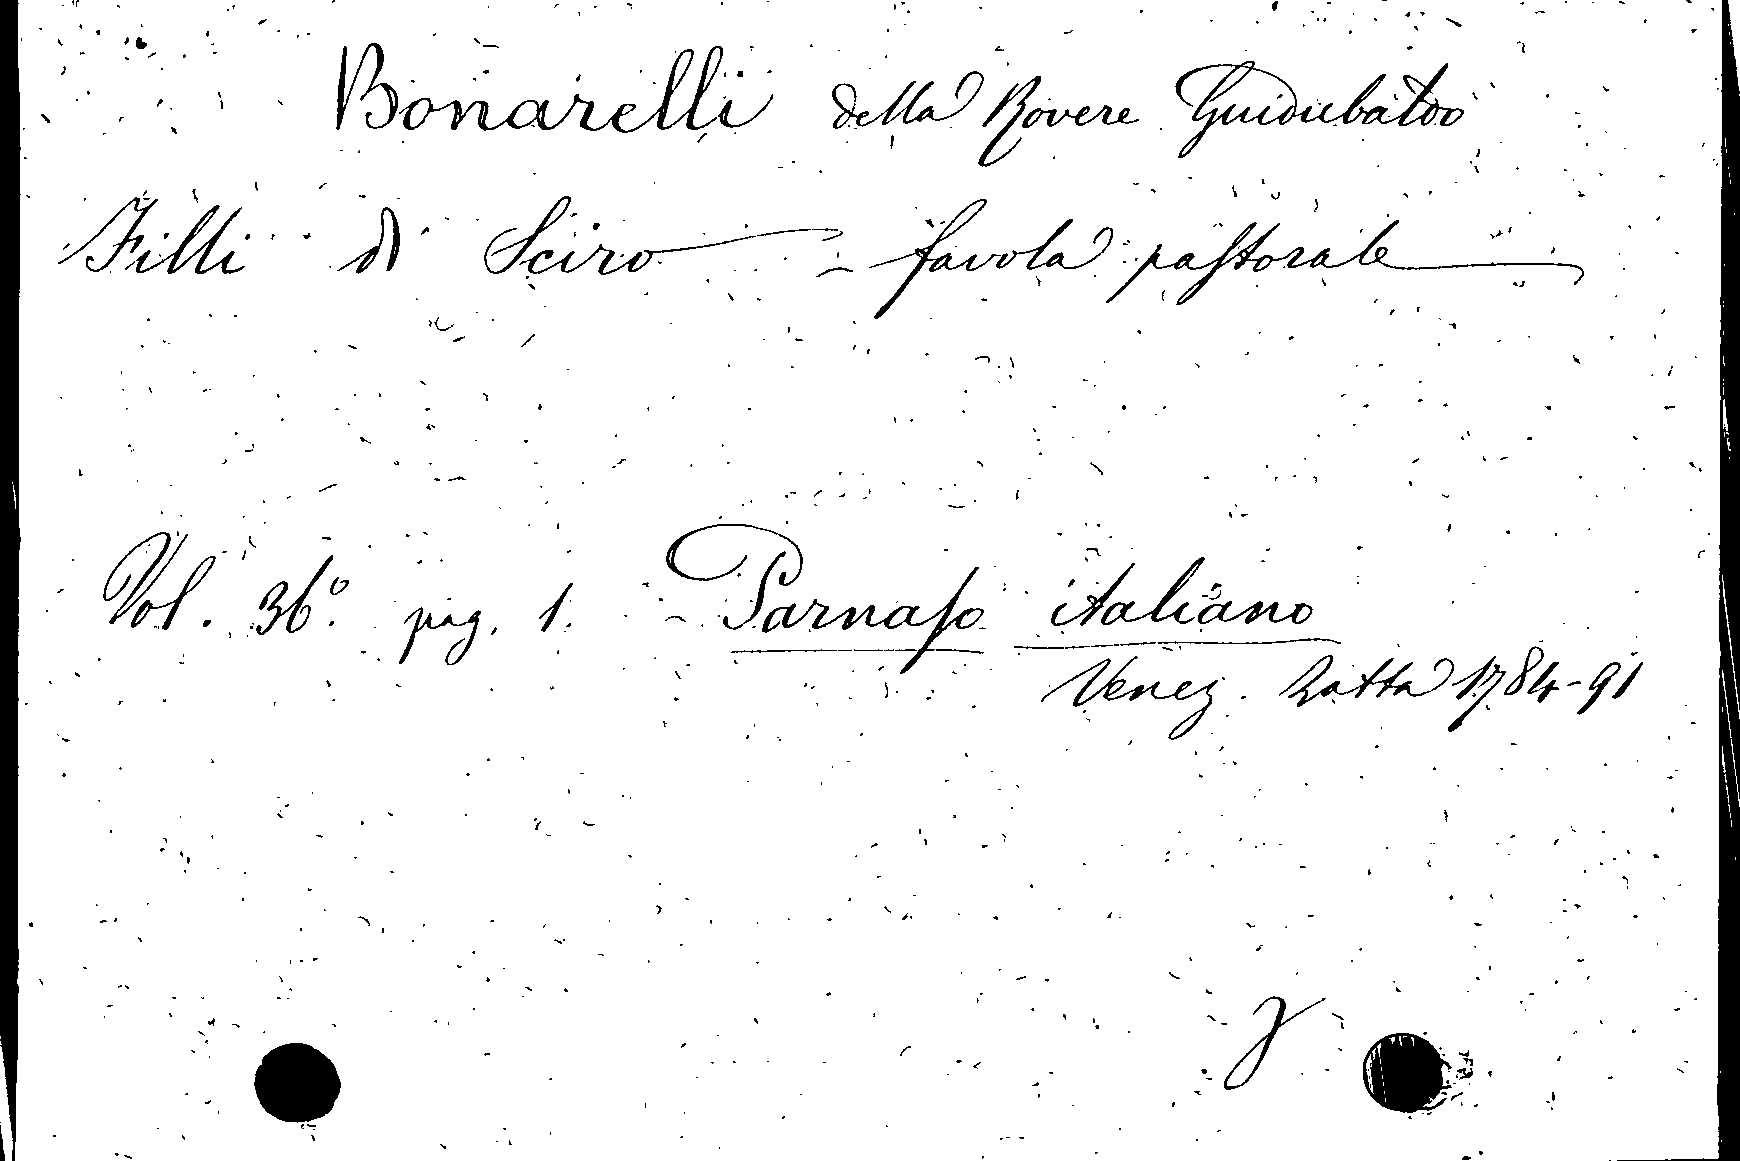 Bonarelli della Rovere Guidubaldo
Filli di Sciro - favola pastorale
Vol. 36.° pag. 1. - Parnaso italiano
Venez. Zatta 1784-91